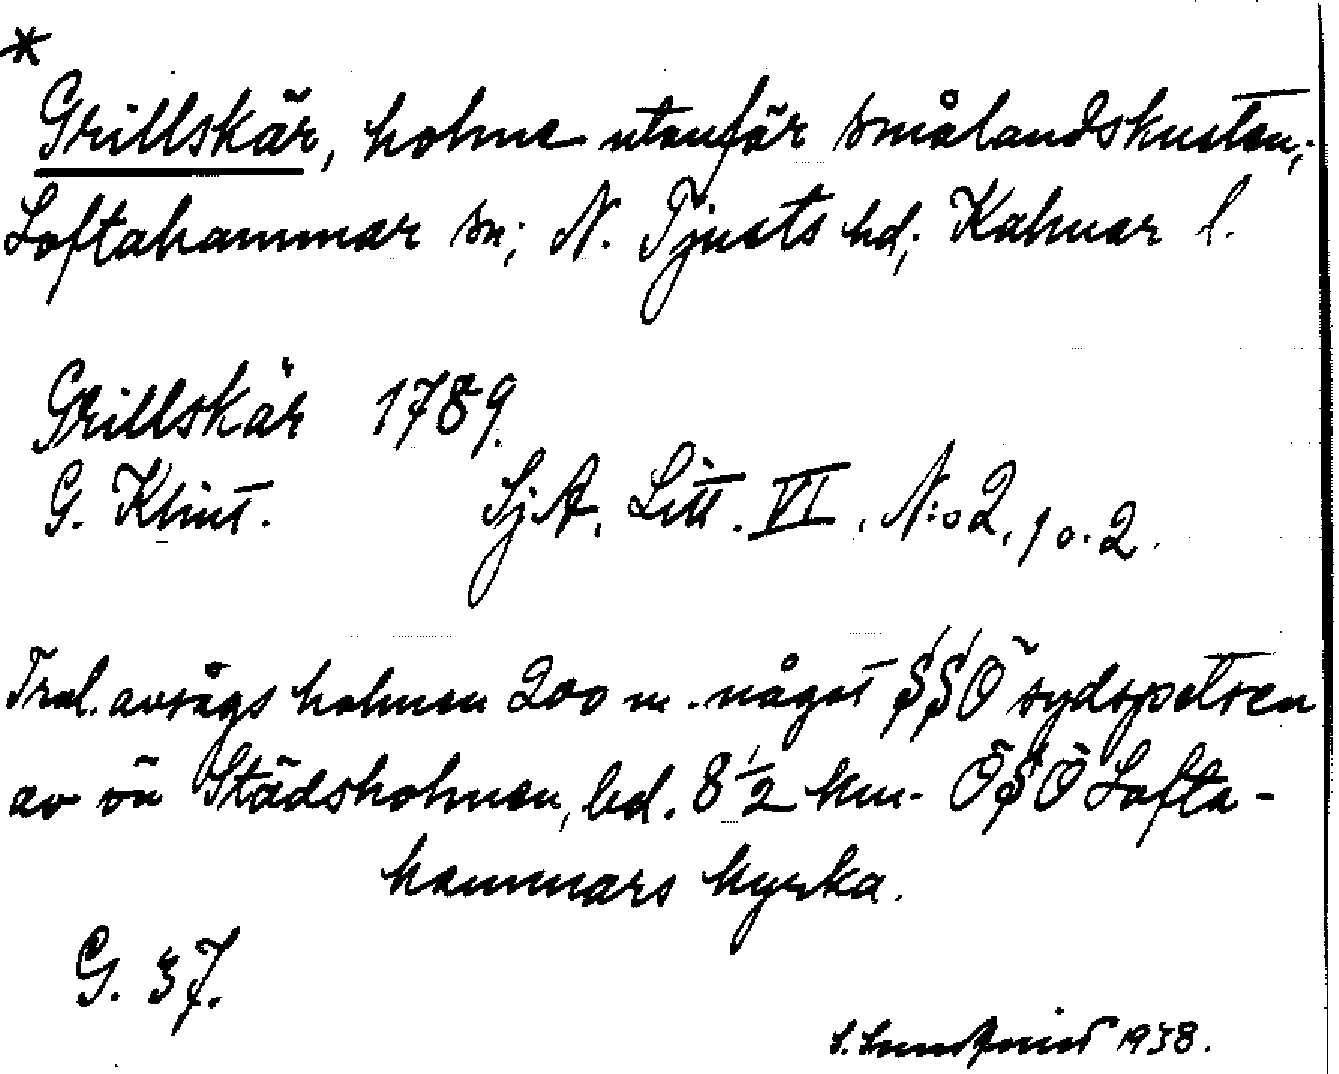 *
Grillskär, holme utanför Smålandskusten,
Loftahammar sn; N. Tjusts hd; Kalmar l.
Grillskär 1789.
G. Klint. SjA. Litt. VI. N:o 2, 1 o. 2.
Trol. avsågs holmen 200 m. något SSÖ sydspetsen
av ön Städsholmen, bel. 8 1/2 km. ÖSÖ Lofta-
hammars kyrka.
G. 37.
1938.